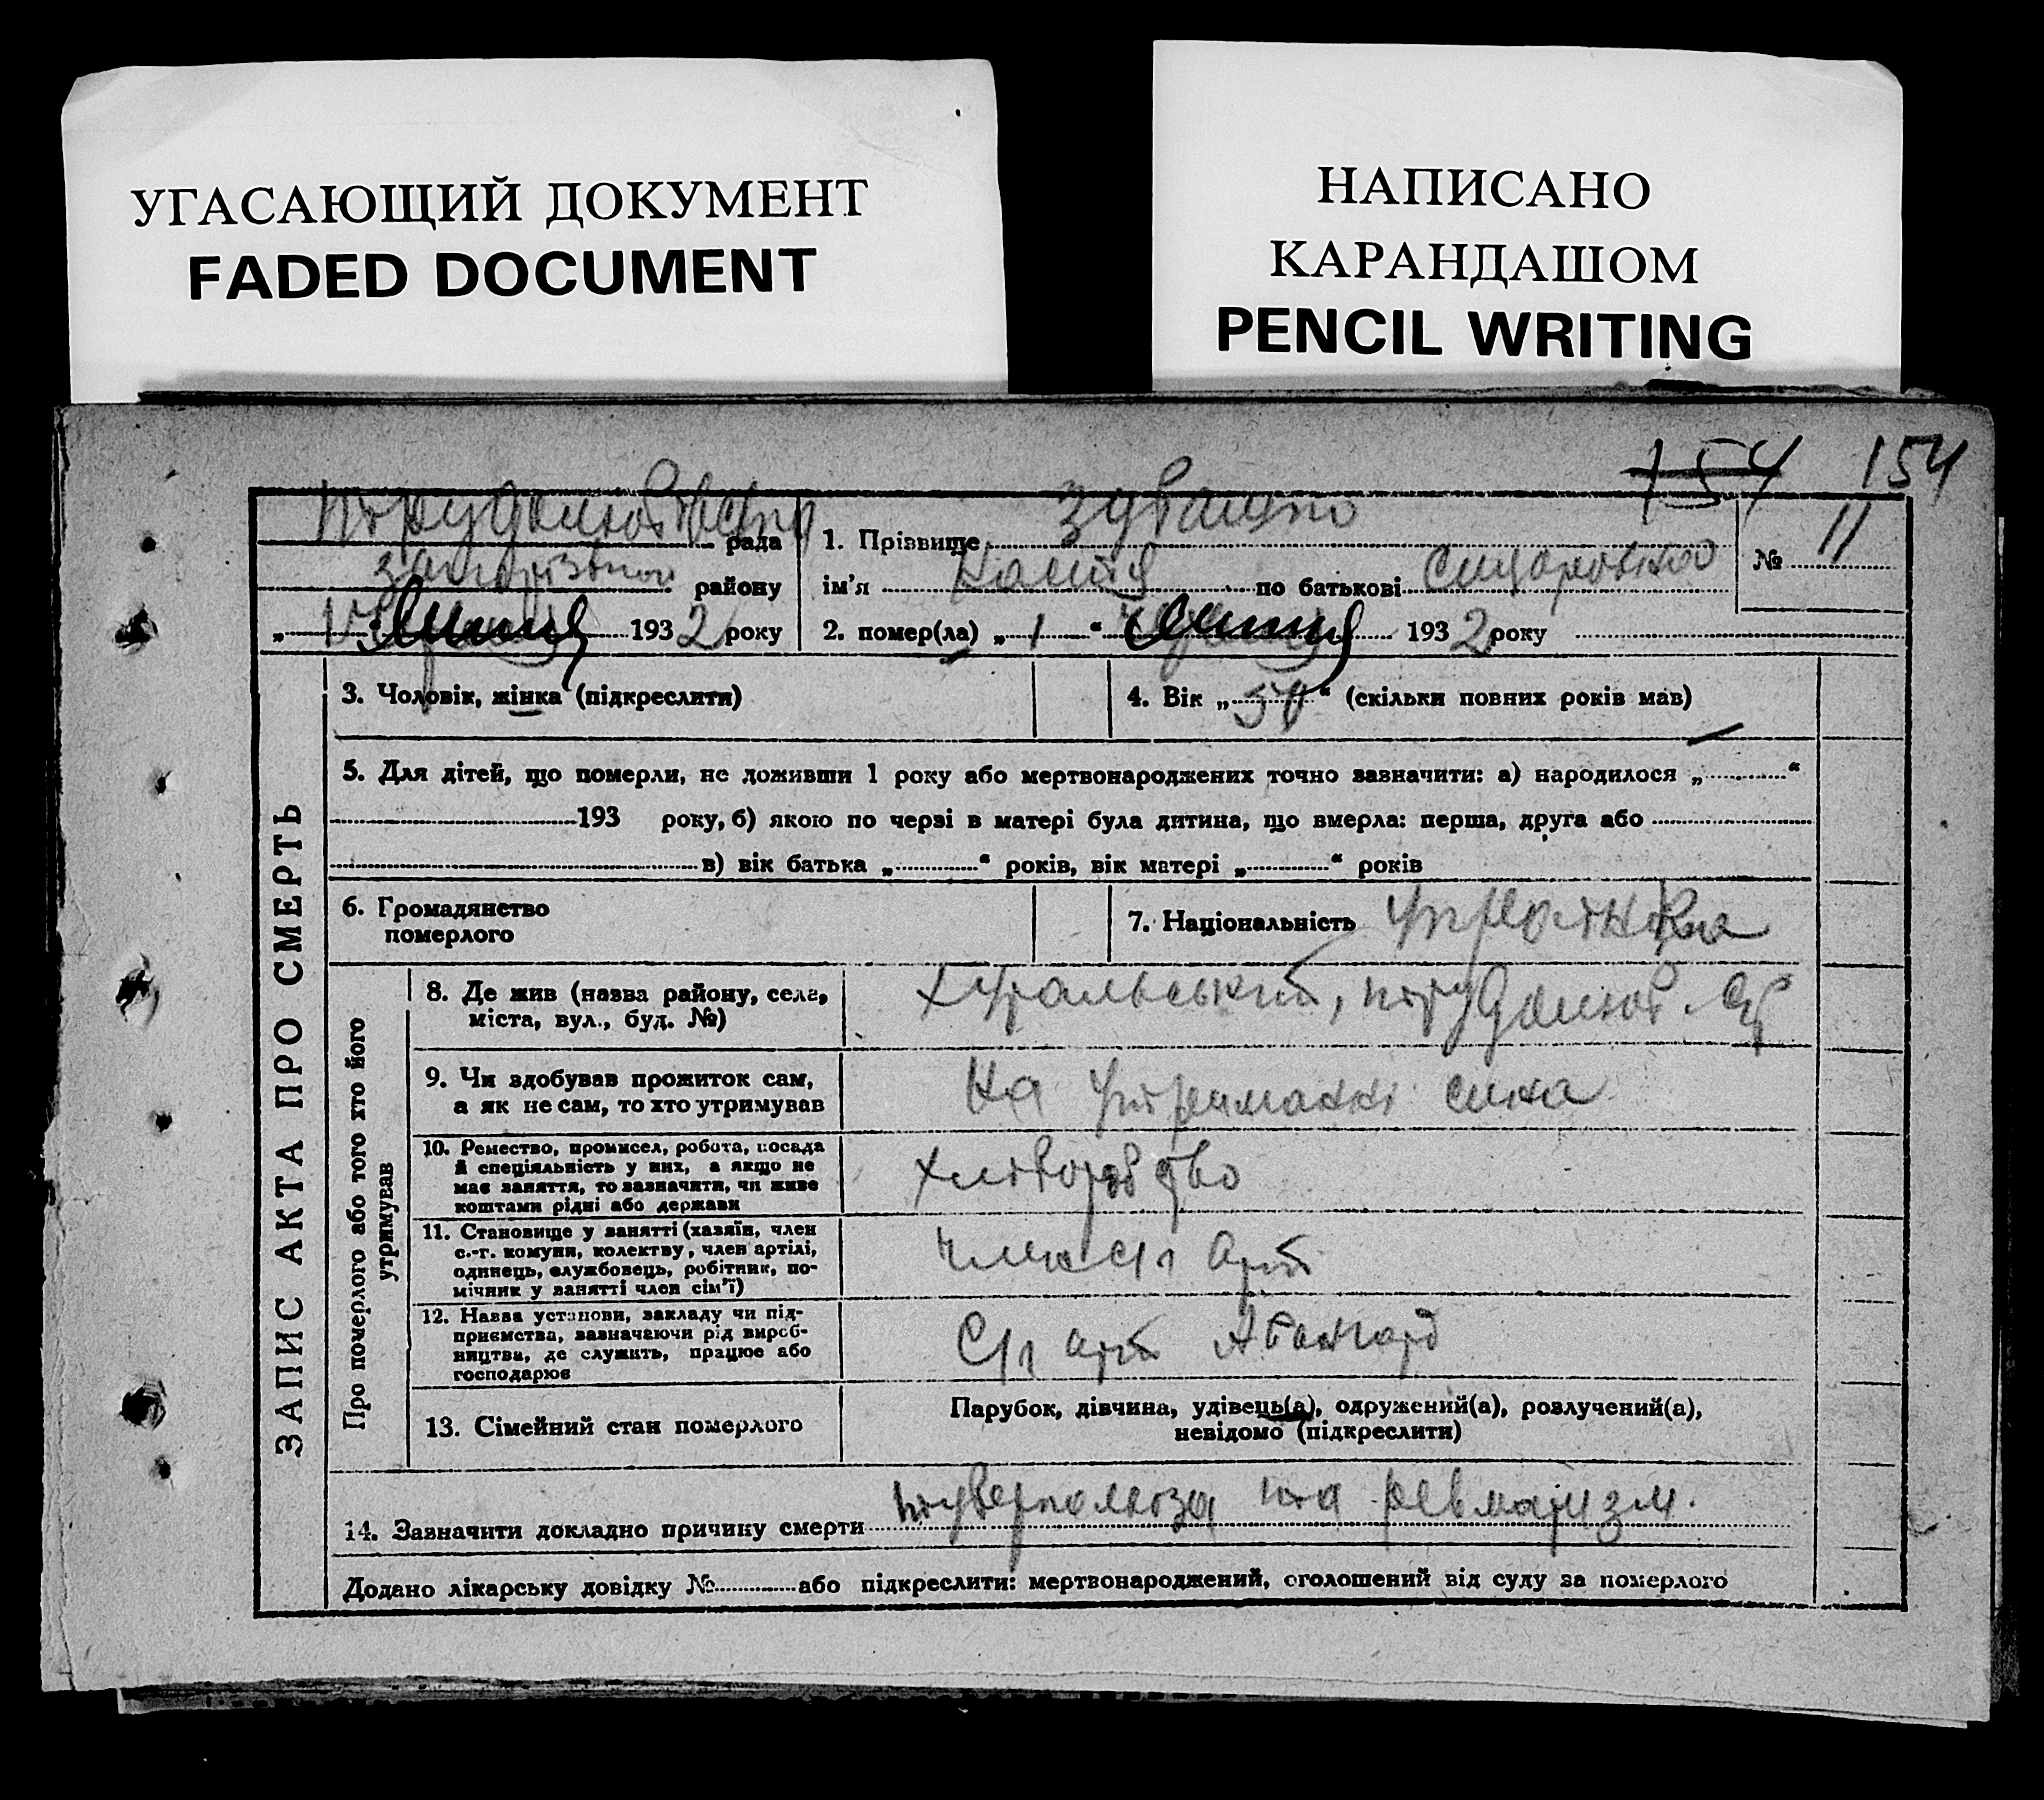 УГАСАЮЩИЙ ДОКУМЕНТ
FADED DOCUMENT
НАПИСАНО
КАРАНДАШОМ
PENCIL WRITING
154 154
рада
району
1932 року
1. Прізвище
ім'я по батькові
№ 11
2. помер(ла) „1“ 1932 року
ЗАПИС АКТА ПРО СМЕРТЬ
3. Чоловік, жінка (підкреслити)
4. Вік „“ (скільки повних років мав)
5. Для дітей, що померли, не доживши 1 року або мертвонароджених точно зазначити: а) народилося „“
193 року, б) якою по черзі в матері була дитина, що вмерла: перша, друга або
в) вік батька „“ років, вік матері „“ років
6. Громадянство
померлого
7. Національність Українка
Про померлого або того хто його
утримував
8. Де жив (назва району, села,
міста, вул., буд. №)
9. Чи здобував прожиток сам,
а як не сам, то хто утримував
На утриманні сина
10. Ремество, промисел, робота, посада
й спеціяльність у них, а якщо не
має заняття, то зазначити, чи живе
коштами рідні або держави
хліборобство
11. Становище у занятті (хазяїн, член
с.-г. комуни, колектву, член артілі,
одинець, службовець, робітник, по-
мічник у занятті член сім'ї)
член с/г арт
12. Назва установи, закладу чи під-
приємства, зазначаючи рід вироб-
ництва, де служить, працює або
господарює
С/г арт Авангард
13. Сімейний стан померлого
Парубок, дівчина, удівець(а), одружений(а), розлучений(а),
невідомо (підкреслити)
14. Зазначити докладно причину смерти туберкольоза та ревматизм.
Додано лікарську довідку № або підкреслити: мертвонароджений, оголошений від суду за померлого